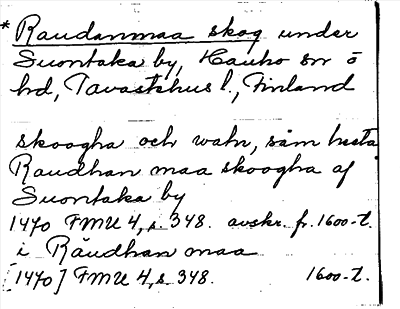 * Raudanmaa skog under
Suontaka by, Hauho sn ö
hd, Tavastehus l., Finland
skoogha och watn, säm hesta
Raudhan maa skoogha af
Suontaka by
1470 FMU 4, s. 348. avskr. fr. 1600-t.
i Räudhan maa
[1470] FMU 4, s. 348. 1600-t.